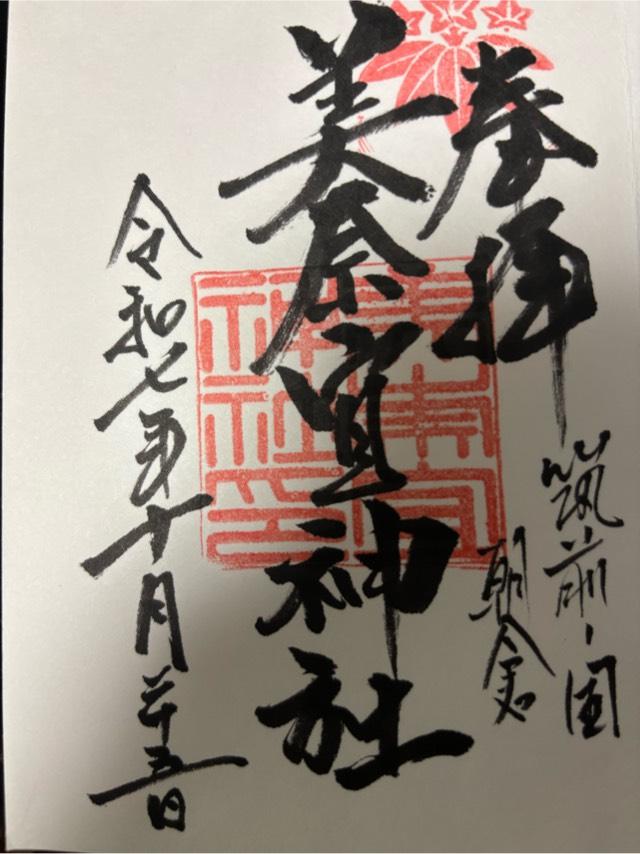 奉拝
筑前ノ国
朝倉
美奈宜神社
美奈宜
神社印
令和七年十月二十五日